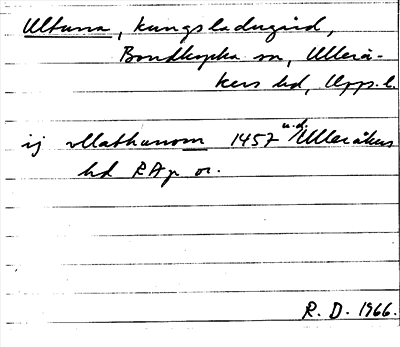 Ultuna, kungsladugård,
Bondkyrka sn, Ullerå-
kers hd, Upps. l.
ij wllathunom 1457 u.d. Ulleråkers
hd RAp or.
R. D. 1966.